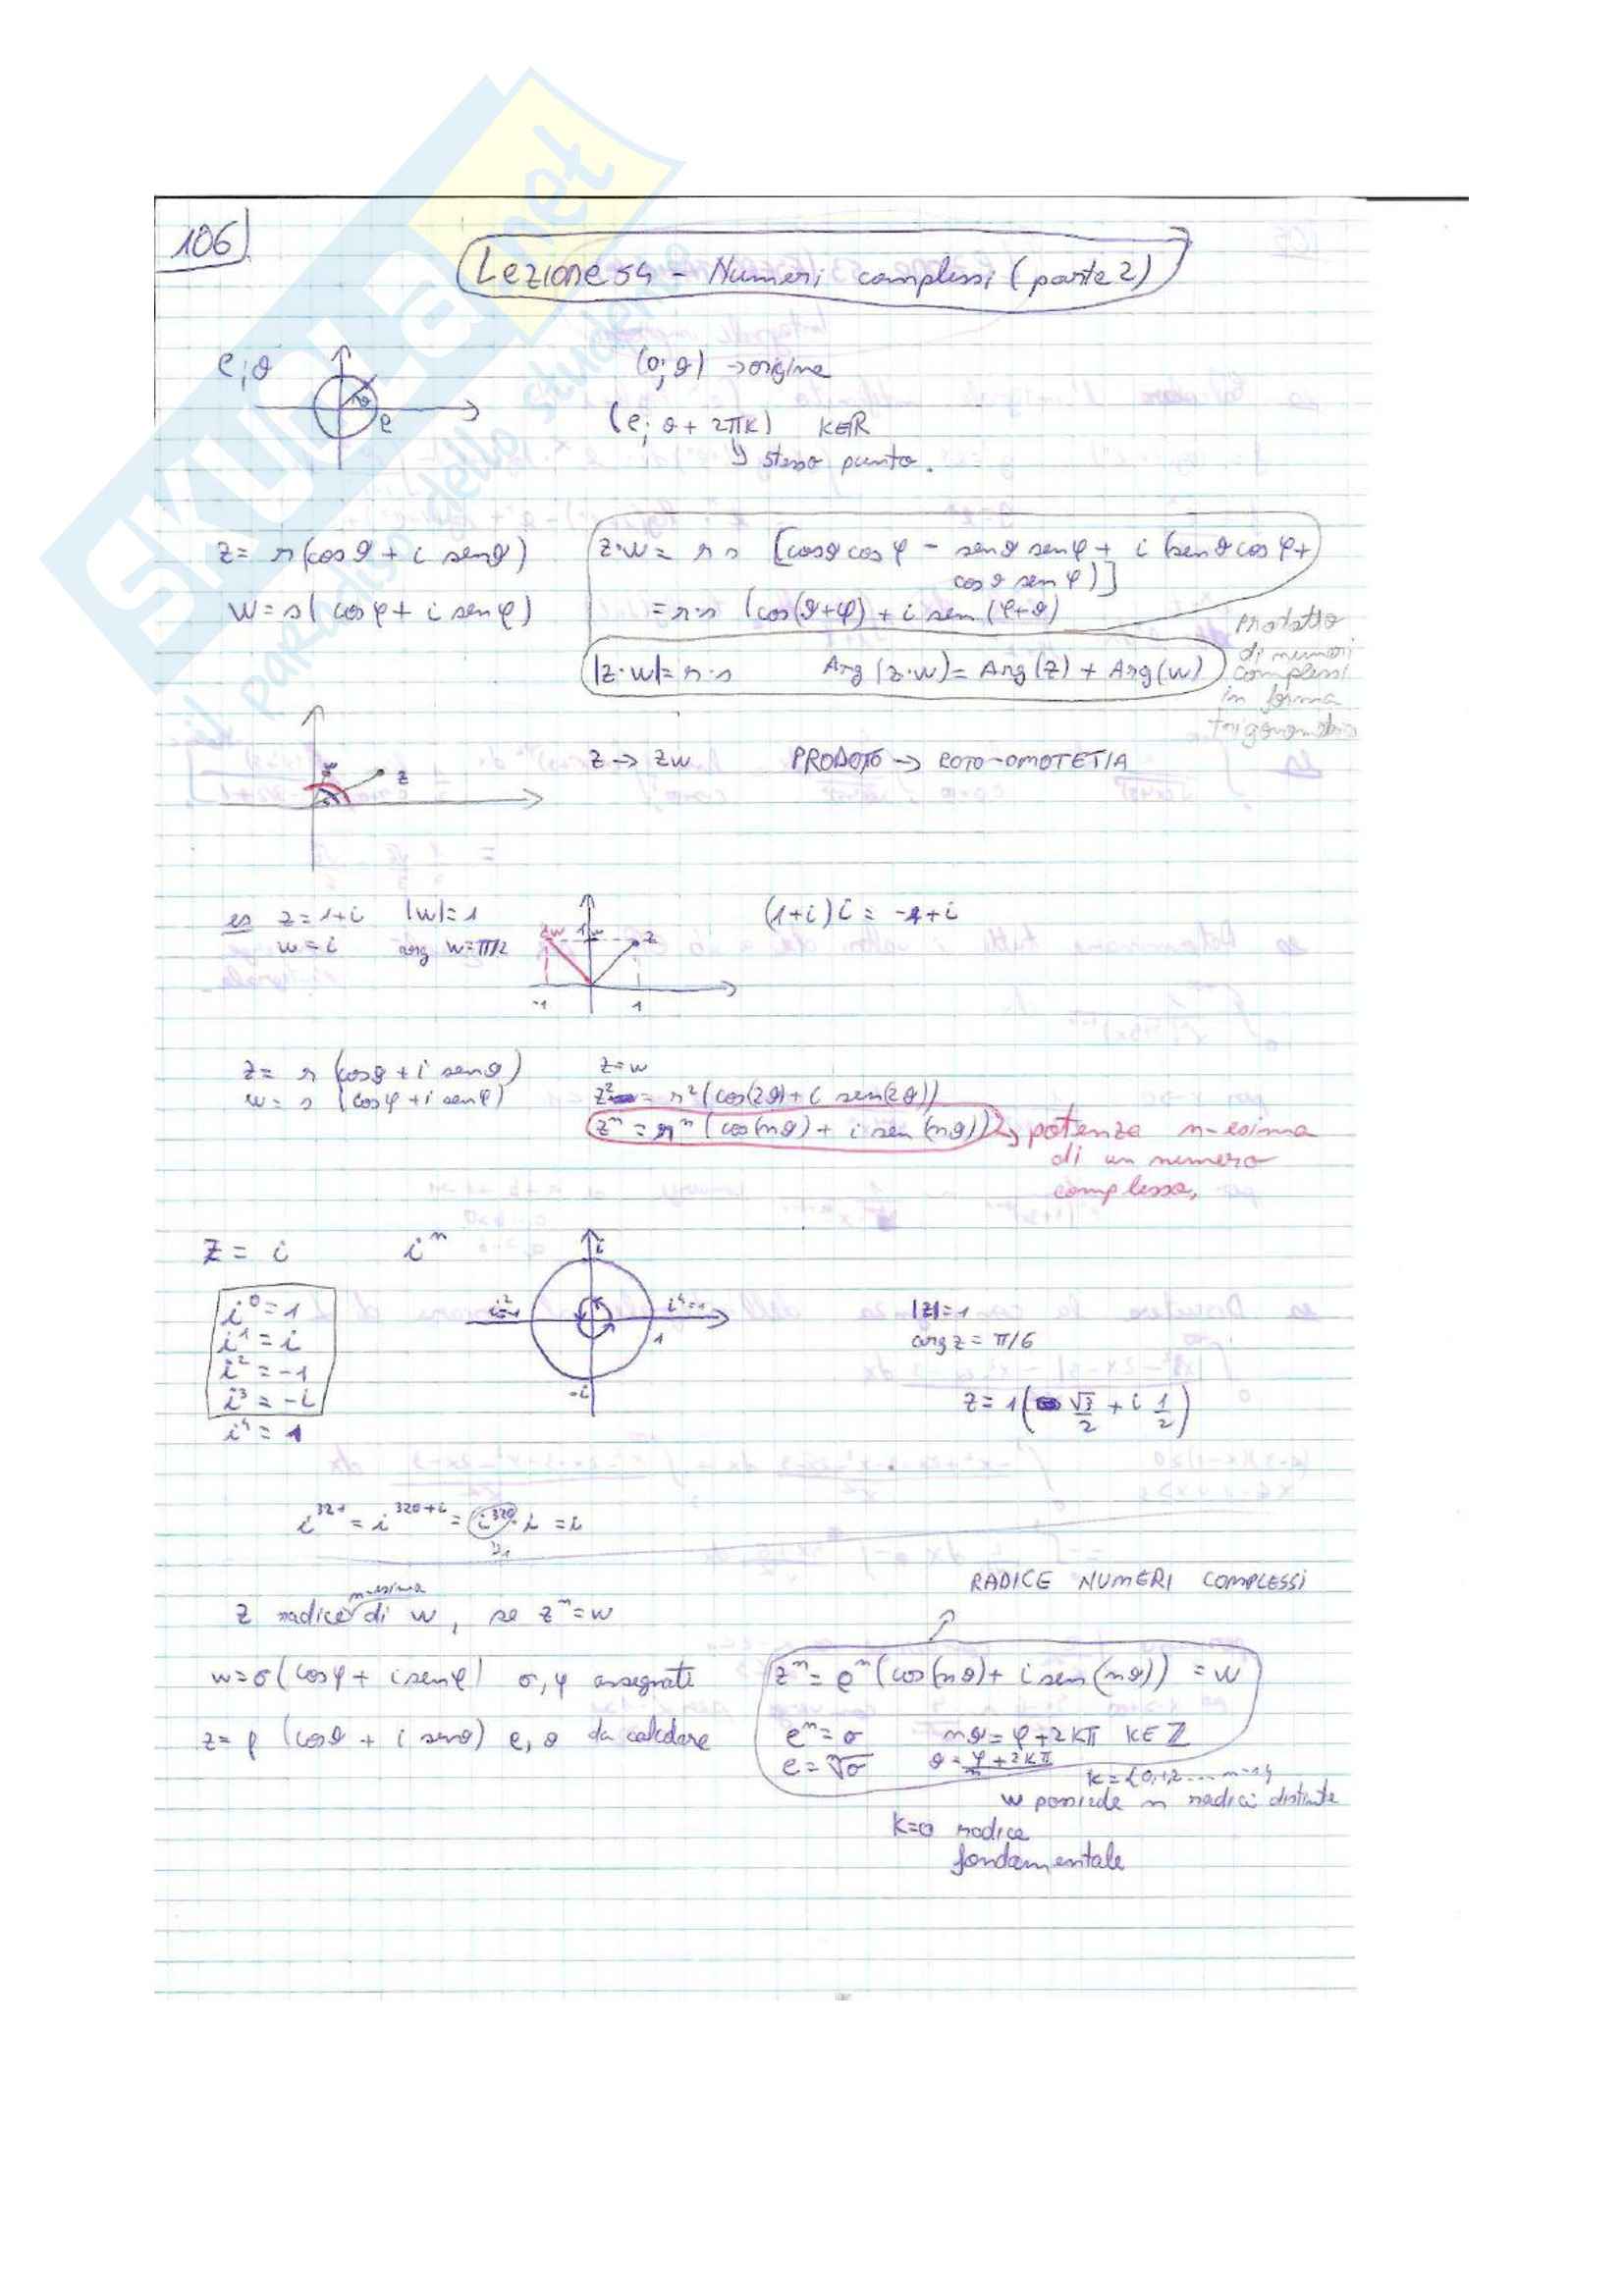 106
Lezione 54 - Numeri complessi (parte 2)
ρ; θ
(0; θ) → origine
ρ
(ρ; θ + 2πK) K∈R
↳ stesso punto.
z = r (cosθ + i senθ)
w = s ( cosφ + i senφ)
z·w = r s [cosθ cosφ - senθ senφ + i (senθ cosφ +
cosθ senφ)]
= r·s (cos(θ+φ) + i sen (φ+θ)
|z·w| = r·s Arg (z·w) = Arg (z) + Arg (w)
Prodotto
di numeri
complessi
in forma
trigonometrica
z
z → zw PRODOTTO → ROTO-OMOTETIA
es z = 1+i |w| = 1
w = i arg w = π/2
zw 1 w z
-1 1
(1+i) i = -1+i
z = r (cosθ + i senθ)
w = s (cosφ + i senφ)
z = w
z² = r² (cos(2θ) + i sen(2θ))
zⁿ = rⁿ (cos(nθ) + i sen (nθ)) → potenza n-esima
di un numero
complesso,
z = i iⁿ
i
i² = -1 i⁴ = 1
1
-i
i⁰ = 1
i¹ = i
i² = -1
i³ = -i
i⁴ = 1
|z| = 1
arg z = π/6
z = 1 ( √3/2 + i 1/2 )
i³²¹ = i³²⁰⁺¹ = i³²⁰ · i = i
↳ 1
RADICE NUMERI COMPLESSI
z radice n-esima di w, se zⁿ = w
w = σ (cosφ + i senφ) σ, φ assegnati
z = ρ (cosθ + i senθ) ρ, θ da calcolare
zⁿ = ρⁿ (cos(nθ) + i sen (nθ)) = w
ρⁿ = σ nθ = φ + 2Kπ K∈Z
ρ = ⁿ√σ θ = φ + 2Kπ / n
K = {0,1,2 .... n-1}
w possiede n radici distinte
K=0 radice
fondamentale
SKUOLA.net
il paradiso dello studente